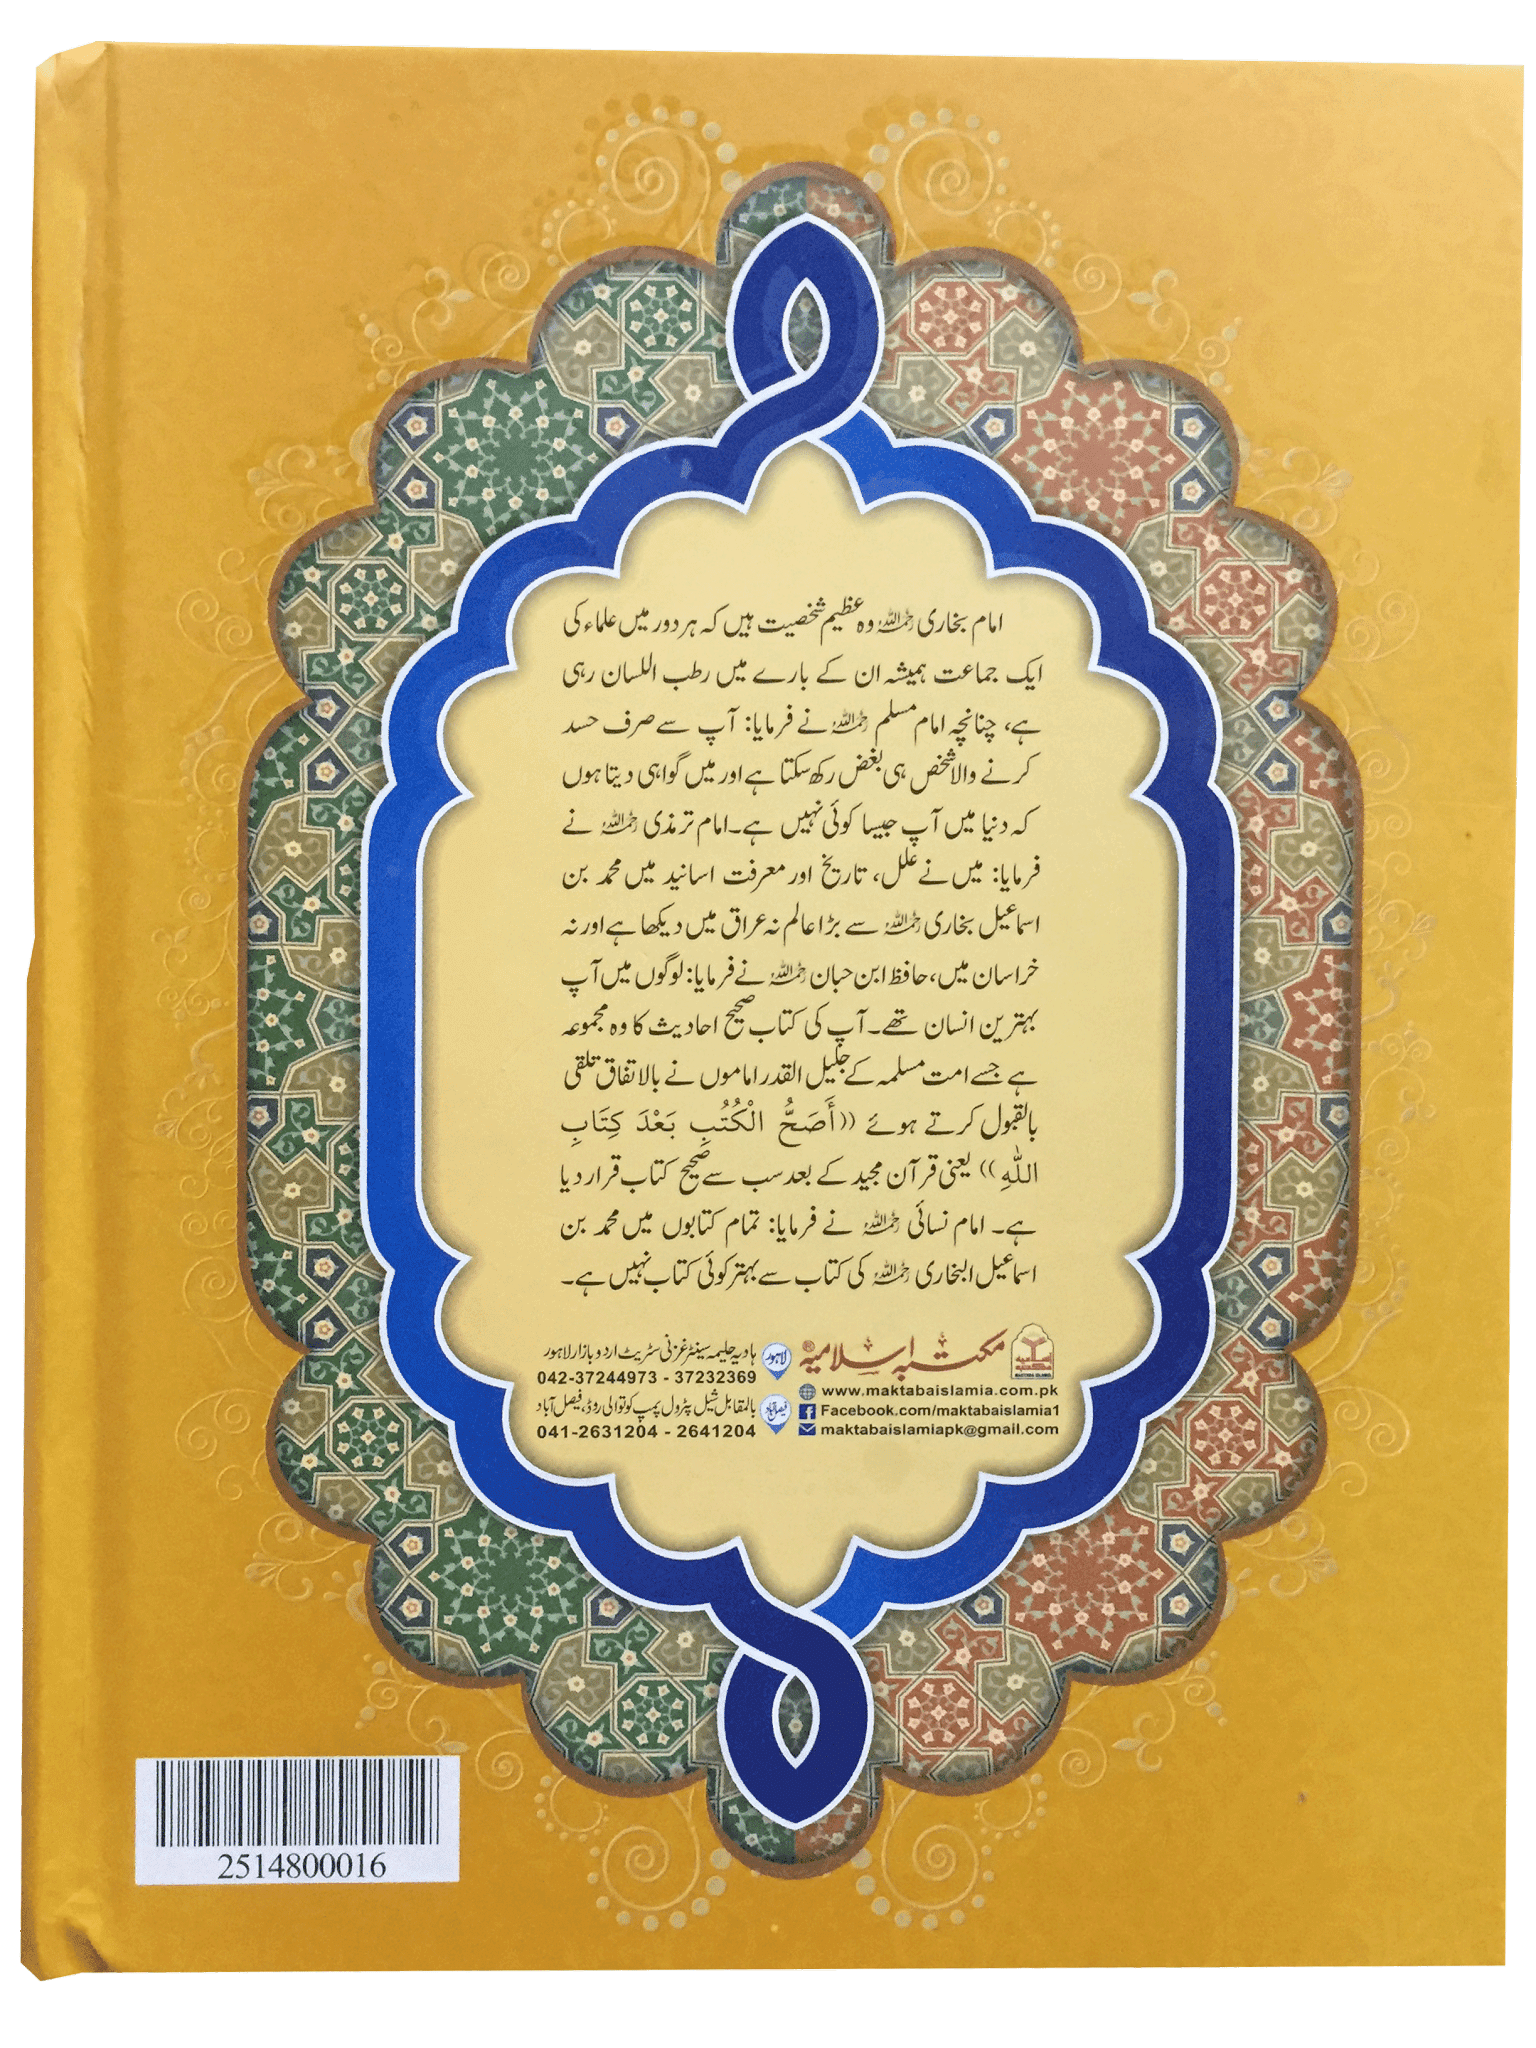 امام بخاری رحمہ اللہ وہ عظیم شخصیت ہیں کہ ہر دور میں علماء کی
ایک جماعت ہمیشہ ان کے بارے میں رطب اللسان رہی
ہے، چنانچہ امام مسلم رحمہ اللہ نے فرمایا: آپ سے صرف حسد
کرنے والا شخص ہی بغض رکھ سکتا ہے اور میں گواہی دیتا ہوں
کہ دنیا میں آپ جیسا کوئی نہیں ہے۔ امام ترمذی رحمہ اللہ نے
فرمایا: میں نے علل، تاریخ اور معرفت اسانید میں محمد بن
اسماعیل بخاری رحمہ اللہ سے بڑا عالم نہ عراق میں دیکھا ہے اور نہ
خراسان میں، حافظ ابن حبان رحمہ اللہ نے فرمایا: لوگوں میں آپ
بہترین انسان تھے۔ آپ کی کتاب صحیح احادیث کا وہ مجموعہ
ہے جسے امت مسلمہ کے جلیل القدر اماموں نے بالاتفاق تلقی
بالقبول کرتے ہوئے ((أَصَحُّ الْكُتُبِ بَعْدَ كِتَابِ
اللّٰهِ)) یعنی قرآن مجید کے بعد سب سے صحیح کتاب قرار دیا
ہے۔ امام نسائی رحمہ اللہ نے فرمایا: تمام کتابوں میں محمد بن
اسماعیل البخاری رحمہ اللہ کی کتاب سے بہتر کوئی کتاب نہیں ہے۔
مکتبہ اسلامیہ®
www.maktabaislamia.com.pk
Facebook.com/maktabaislamia1
maktabaislamiapk@gmail.com
لاہور
ہادیہ حلیمہ سینٹر غزنی سٹریٹ اردو بازار لاہور
042-37244973 - 37232369
فیصل آباد
بالمقابل شیل پٹرول پمپ کوتوالی روڈ، فیصل آباد
041-2631204 - 2641204
2514800016